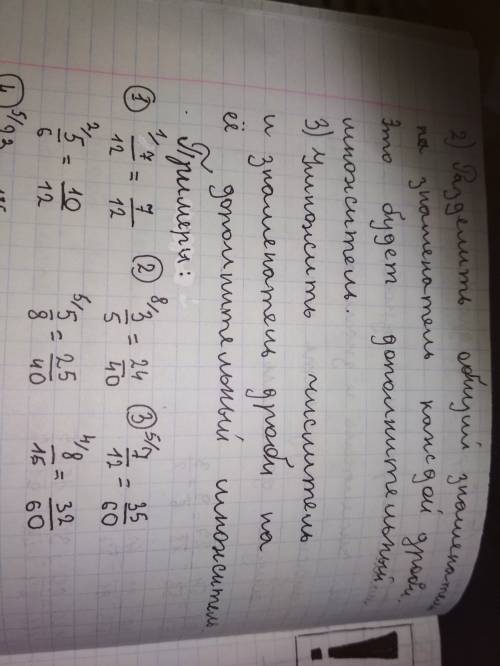 2) Разделить общий знаменатель
на знаменатель каждой дроби.
Это будет дополнительный
множитель.
3) Умножить числитель
и знаменатель дроби на
её дополнительный множитель.
Примеры:
① 1/ 7/12 = 7/12 ② 8/ 3/5 = 24/40 ③ 5/ 7/12 = 35/60
2/ 5/6 = 10/12 5/ 5/8 = 25/40 4/ 8/15 = 32/60
④